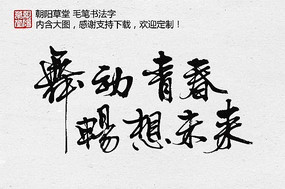 朝阳草堂 毛笔书法字
内含大图,感谢支持下载,欢迎定制!
舞动青春
暢想未来